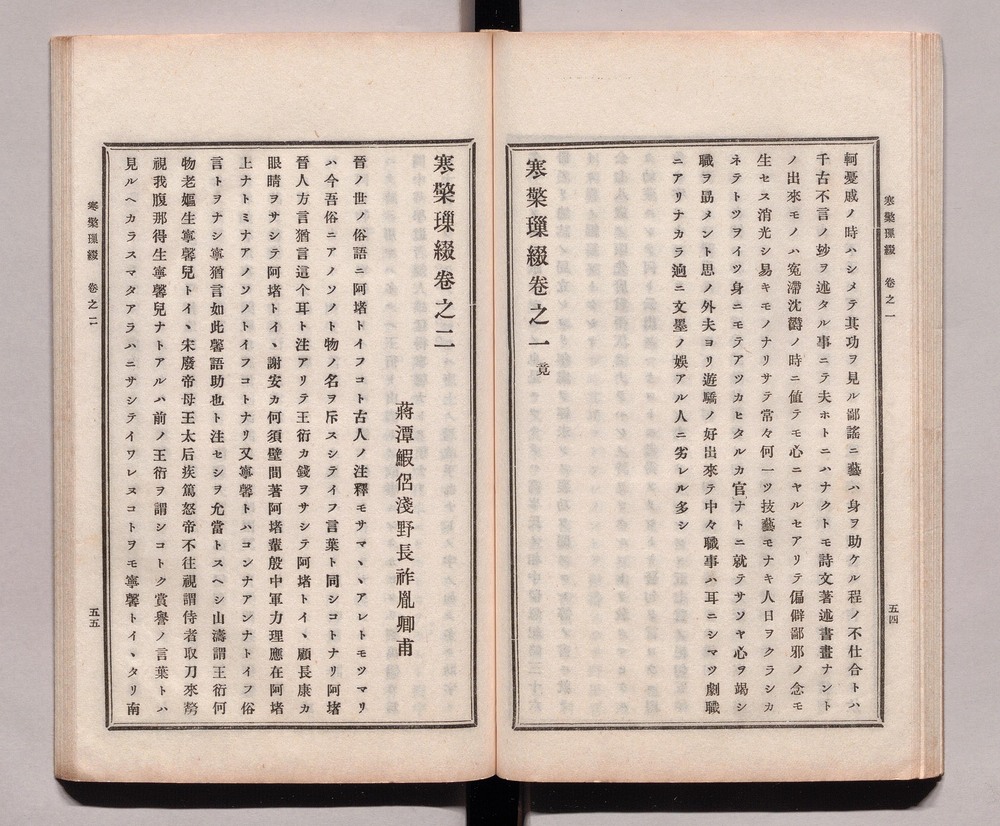 寒檠璅綴 卷之一
五四
軻憂戚ノ時ハシメテ其功ヲ見ル鄙謠ニ藝ハ身ヲ助ケル程ノ不仕合トハ
千古不言ノ妙ヲ述タル事ニテ夫ホトニハナクトモ詩文著述書畫ナント
ノ出來モノハ冤滯沈欝ノ時ニ値テモ心ニヤルセアリテ偏僻鄙邪ノ念モ
生セス消光シ易キモノナリサテ常々何一ツ技藝モナキ人日ヲクラシカ
ネテトツヲイツ身ニモテアツカヒタルカ官ナトニ就テサソヤ心ヲ竭シ
職ヲ勗メント思ノ外夫ヨリ遊驕ノ好出來テ中々職事ハ耳ニシマツ劇職
ニアリナカラ適ニ文墨ノ娯アル人ニ劣レル多シ
寒檠璅綴卷之一 竟
寒檠璅綴卷之二
蔣潭鰕侶淺野長祚胤卿甫
晉ノ世ノ俗語ニ阿堵トイフコト古人ノ注釋モサマヽヽアレトモツマリ
ハ今吾俗ニアノソノト物ノ名ヲ斥スシテイフ言葉ト同シコトナリ阿堵
晉人方言猶言這个耳ト注アリテ王衍カ錢ヲサシテ阿堵トイヽ顧長康カ
眼睛ヲサシテ阿堵トイヽ謝安カ何須壁間著阿堵輩殷中軍力理應在阿堵
上ナトミナアノソノトイフコトナリ又寧馨トハコンナアンナトイフ俗
言トヲナシ寧猶言如此馨語助也ト注セシヲ允當トスヘシ山濤謂王衍何
物老嫗生寧馨兒トイヽ宋廢帝母王太后疾篤怒帝不往視謂侍者取刀來剺
視我腹那得生寧馨兒ナトアルハ前ノ王衍ヲ謂シコトク賞譽ノ言葉トハ
見ルヘカラスマタアラハニサシテイワレヌコトヲモ寧馨トイヽタリ南
寒檠璅綴 卷之二
五五